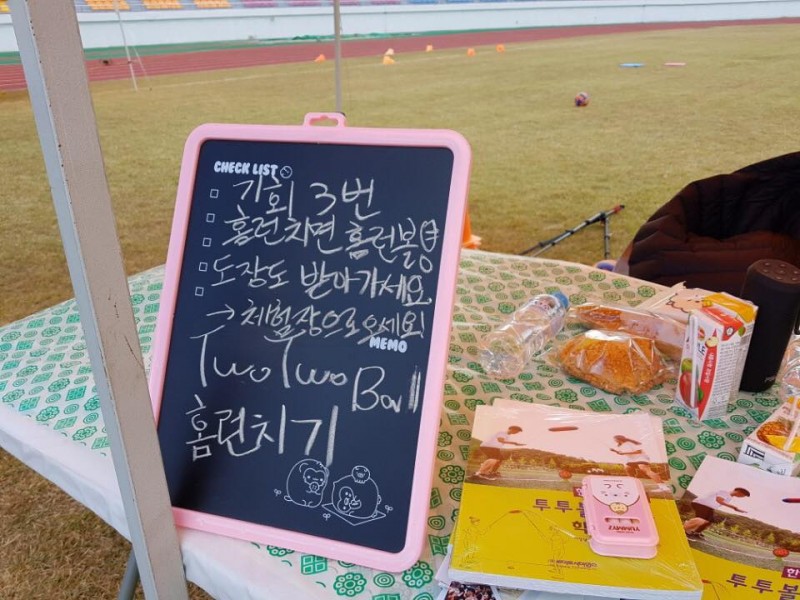 CHECK LIST
기회 3번
홈런치면 홈런볼증
도장도 받아가세요
→ 체험장으로 오세요!
MEMO
Two Two Ball
홈런치기
투투볼
학
YUMMYZ
한
투투볼